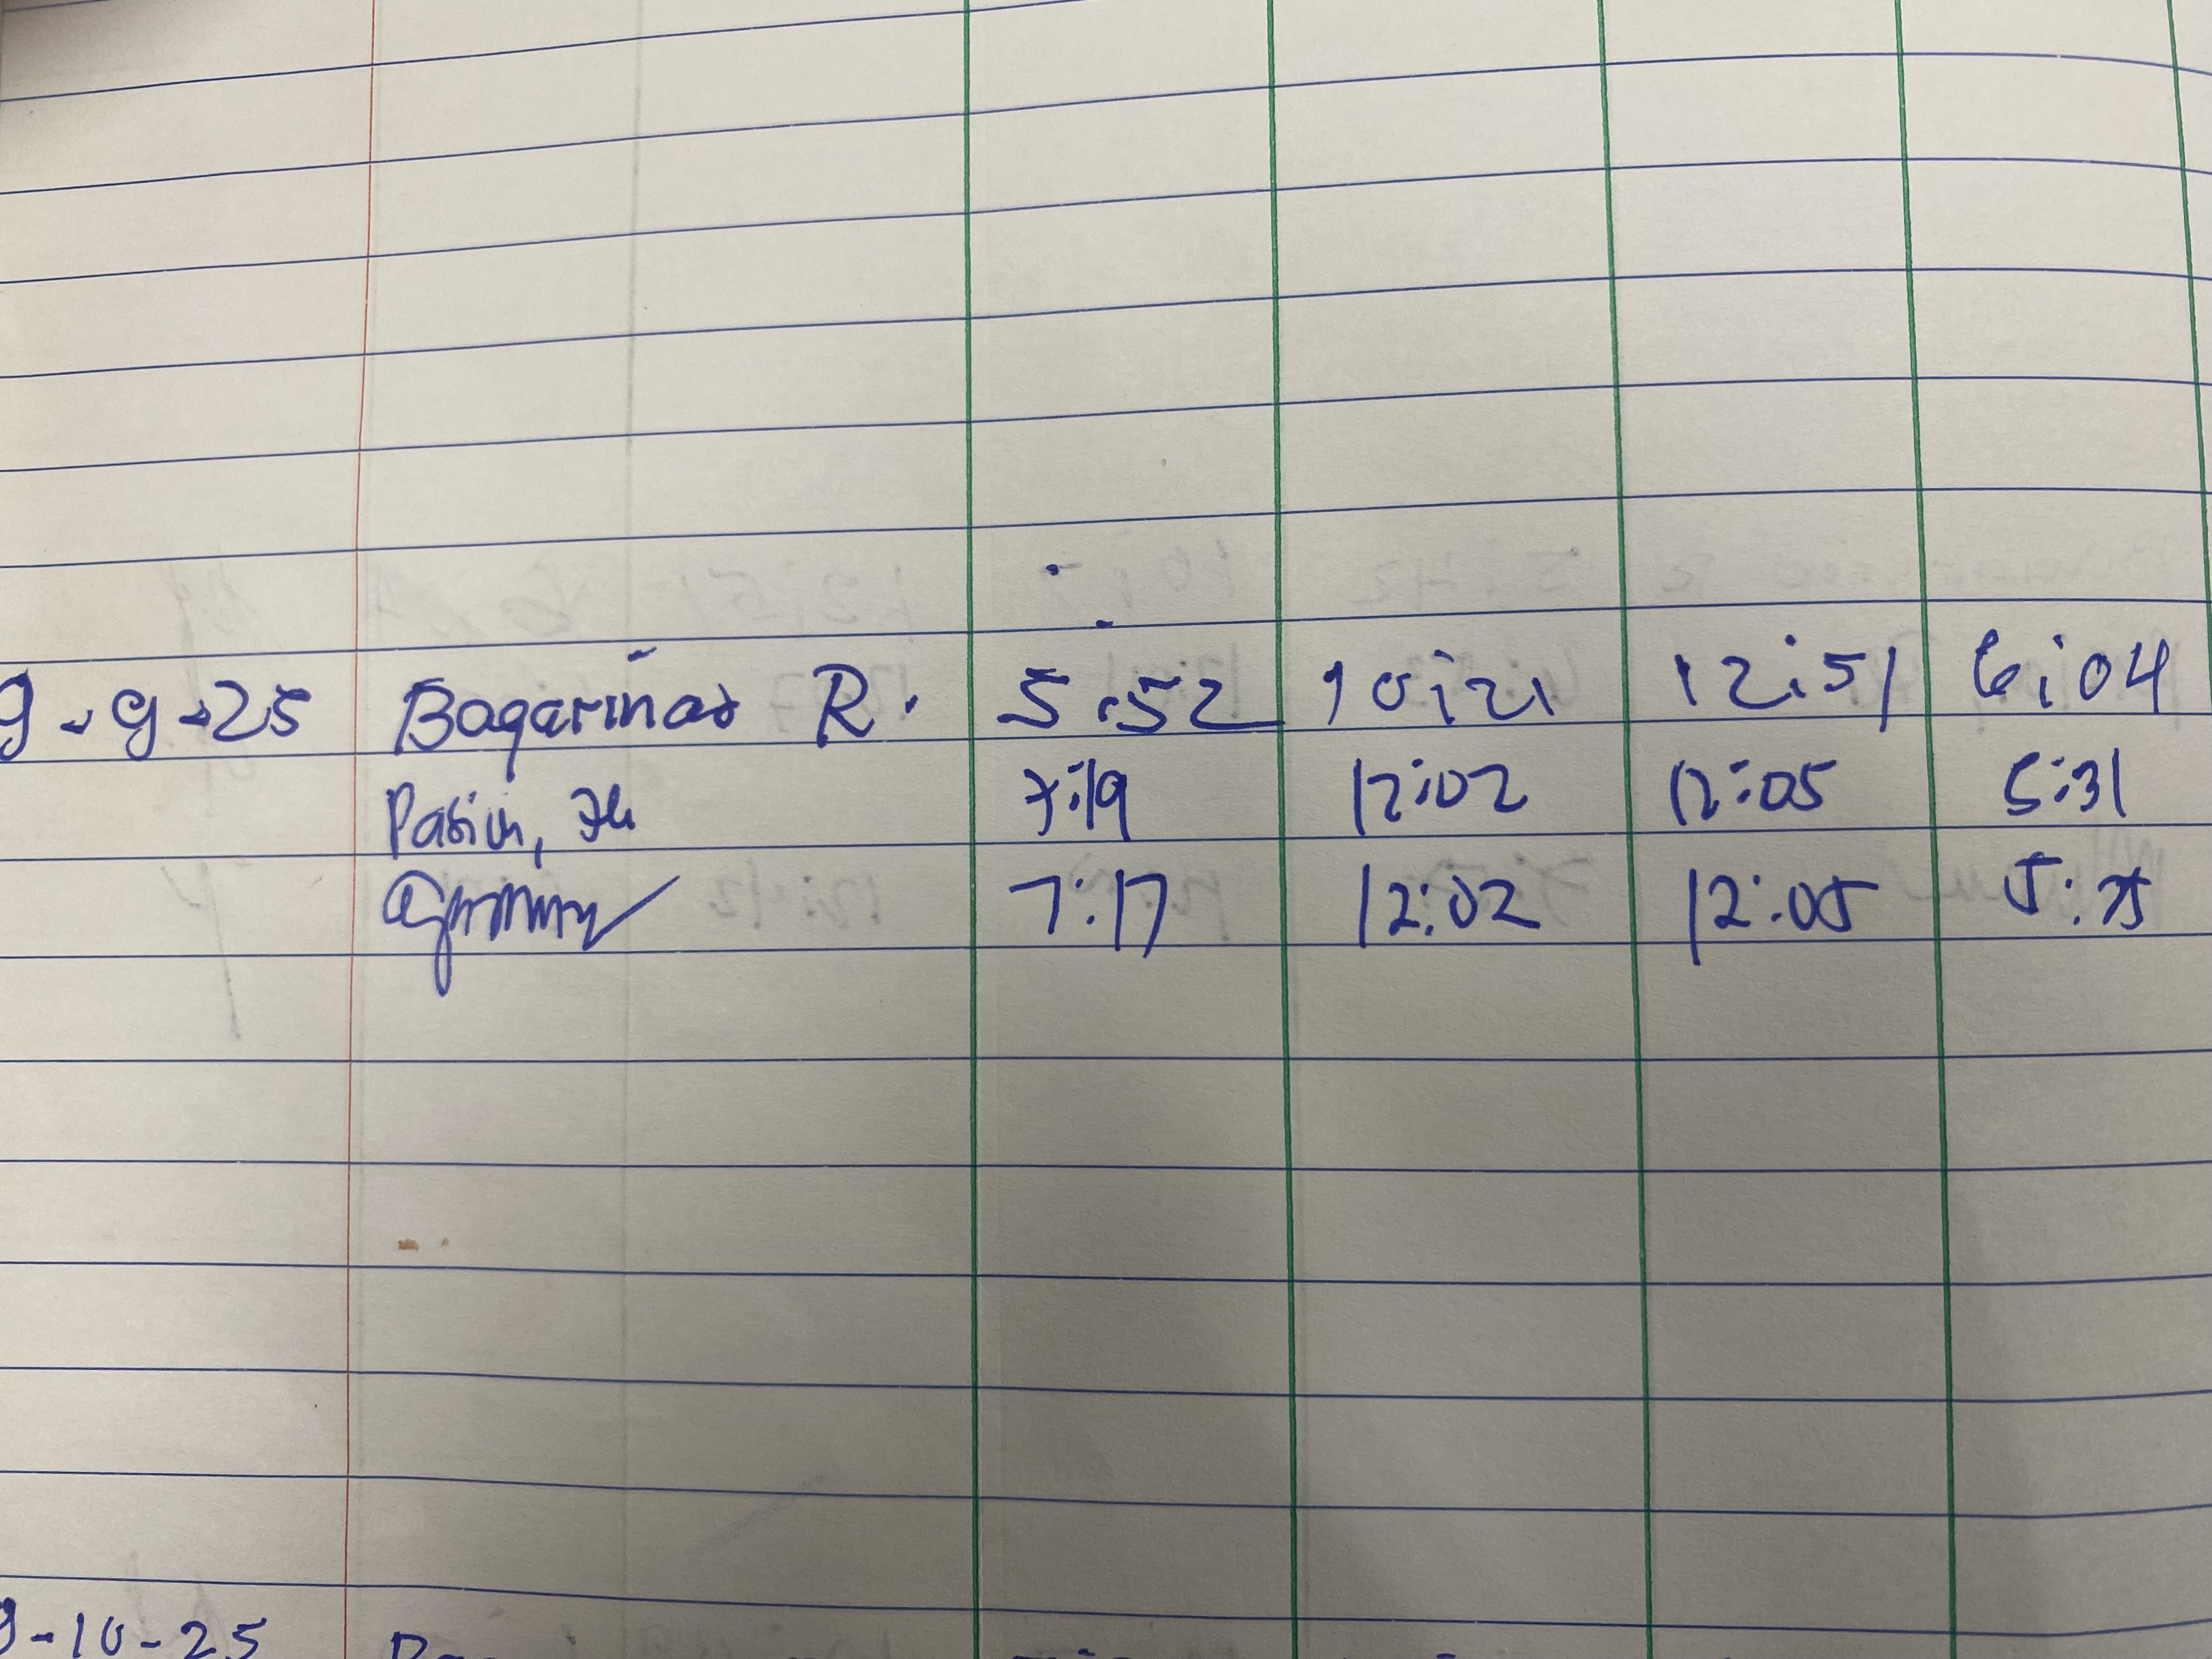 9-9-25 Bagariñas R. 5:52 10:21 12:51 6:04
7:19 12:02 12:05 5:31
7:17 12:02 12:05
9-10-25